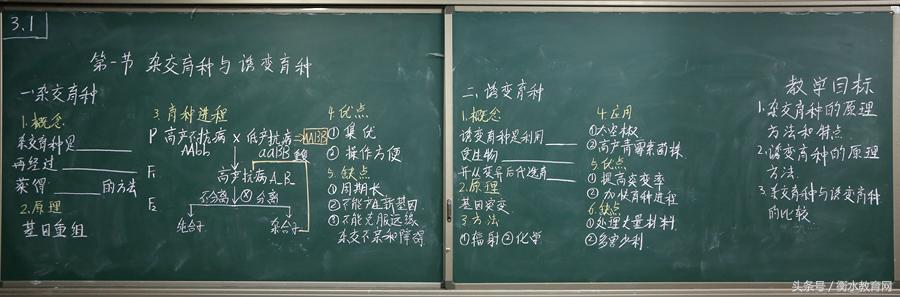 3.1
第一节 杂交育种与诱变育种
一.杂交育种
1.概念
杂交育种是
再经过
获得 的方法
2.原理
基因重组
3.育种进程
P 高产不抗病 × 低产抗病 AABB
AAbb aaBB
F₁ 高产抗病A_B_
F₂ 不分离 ⊗ 分离
纯合子 杂合子
4.优点
①集优
②操作方便
5.缺点
①周期长
②不能产生新基因
③不能克服远缘
杂交不亲和障碍
二.诱变育种
1.概念
诱变育种是利用
使生物
并从变异后代选育
2.原理
基因突变
3.方法
①辐射②化学
4.应用
①太空椒
②高产青霉素菌株
5.优点
①提高突变率
②加快育种进程
6.缺点
①处理大量材料
②多害少利
教学目标
1.杂交育种的原理
方法和特点.
2.诱变育种的原理
方法.
3.杂交育种与诱变育种
的比较.
头条号／衡水教育网